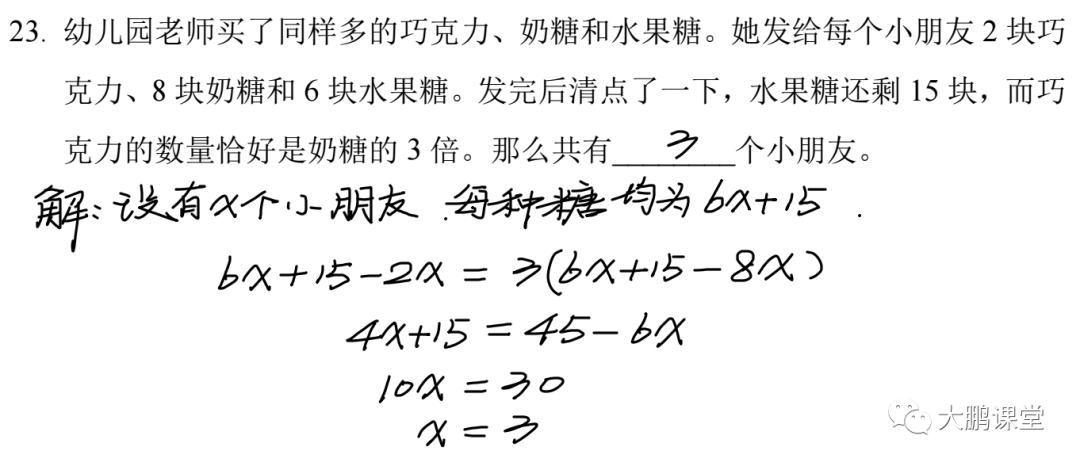 23. 幼儿园老师买了同样多的巧克力、奶糖和水果糖。她发给每个小朋友 2 块巧
克力、8 块奶糖和 6 块水果糖。发完后清点了一下，水果糖还剩 15 块，而巧
克力的数量恰好是奶糖的 3 倍。那么共有___3___个小朋友。
解：设有x个小朋友．每种糖均为6x+15．
6x+15-2x=3(6x+15-8x)
4x+15=45-6x
10x=30
x=3
大鹏课堂